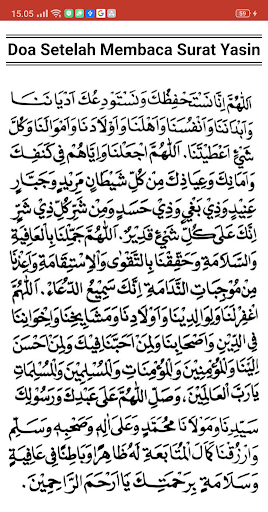 15.05
59
Doa Setelah Membaca Surat Yasin
اَللّٰهُمَّ اِنَّا نَسْتَحْفِظُكَ وَنَسْتَوْدِعُكَ اَدْيَانَنَا
وَاَبْدَانَنَا وَاَنْفُسَنَا وَاَهْلَنَا وَاَوْلَادَنَا وَاَمْوَالَنَا وَكُلَّ
شَيْءٍ اَعْطَيْتَنَا. اَللّٰهُمَّ اجْعَلْنَا وَاِيَّاهُمْ فِيْ كَنَفِكَ
وَاَمَانِكَ وَعِيَاذِكَ مِنْ كُلِّ شَيْطَانٍ مَرِيْدٍ وَجَبَّارٍ
عَنِيْدٍ وَذِيْ بَغْيٍ وَذِيْ حَسَدٍ وَمِنْ شَرِّ كُلِّ ذِيْ شَرٍّ
اِنَّكَ عَلَى كُلِّ شَيْءٍ قَدِيْرٌ. اَللّٰهُمَّ جَمِّلْنَا بِالْعَافِيَةِ
وَالسَّلَامَةِ وَحَقِّقْنَا بِالتَّقْوَى وَالْاِسْتِقَامَةِ وَاَعِذْنَا
مِنْ مُوْجِبَاتِ النَّدَامَةِ اِنَّكَ سَمِيْعُ الدُّعَاءِ. اَللّٰهُمَّ
اغْفِرْلَنَا وَلِوَالِدِيْنَا وَاَوْلَادِنَا وَمَشَايِخِنَا وَاِخْوَانِنَا
فِي الدِّيْنِ وَاَصْحَابِنَا وَلِمَنْ اَحَبَّنَا فِيْكَ وَلِمَنْ اَحْسَنَ
اِلَيْنَا وَلِلْمُؤْمِنِيْنَ وَالْمُؤْمِنَاتِ وَالْمُسْلِمِيْنَ وَالْمُسْلِمَاتِ
يَارَبَّ الْعَالَمِيْنَ. وَصَلِّ اللّٰهُمَّ عَلَى عَبْدِكَ وَرَسُوْلِكَ
سَيِّدِنَا وَمَوْلَانَا مُحَمَّدٍ وَعَلَى اٰلِهِ وَصَحْبِهِ وَسَلِّمْ
وَارْزُقْنَا كَمَالَ الْمُتَابَعَةِ لَهُ ظَاهِرًا وَبَاطِنًا فِيْ عَافِيَةٍ
وَسَلَامَةٍ بِرَحْمَتِكَ يَااَرْحَمَ الرَّاحِمِيْنَ.